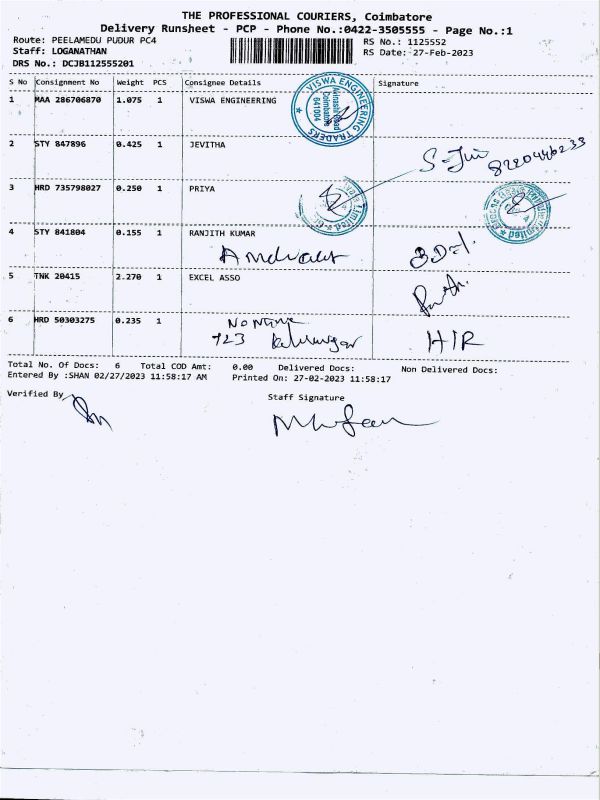 THE PROFESSIONAL COURIERS, Coimbatore
Delivery Runsheet - PCP - Phone No.:0422-3505555 - Page No.:1
Route: PEELAMEDU PUDUR PC4 RS No.: 1125552
Staff: LOGANATHAN RS Date: 27-Feb-2023
DRS No.: DCJB112555201
S No Consignment No Weight PCS Consignee Details Signature
1 MAA 286706870 1.075 1 VISWA ENGINEERING
VISWA ENGINEERING TRADERS
Avinashi Road
Coimbatore
641004
2 STY 847896 0.425 1 JEVITHA
8220446233
3 HRD 735798027 0.250 1 PRIYA
4 STY 841804 0.155 1 RANJITH KUMAR
5 TNK 20415 2.270 1 EXCEL ASSO
6 HRD 50303275 0.235 1 No Name
723 HIR
Total No. Of Docs: 6 Total COD Amt: 0.00 Delivered Docs: Non Delivered Docs:
Entered By :SHAN 02/27/2023 11:58:17 AM Printed On: 27-02-2023 11:58:17
Verified By Staff Signature